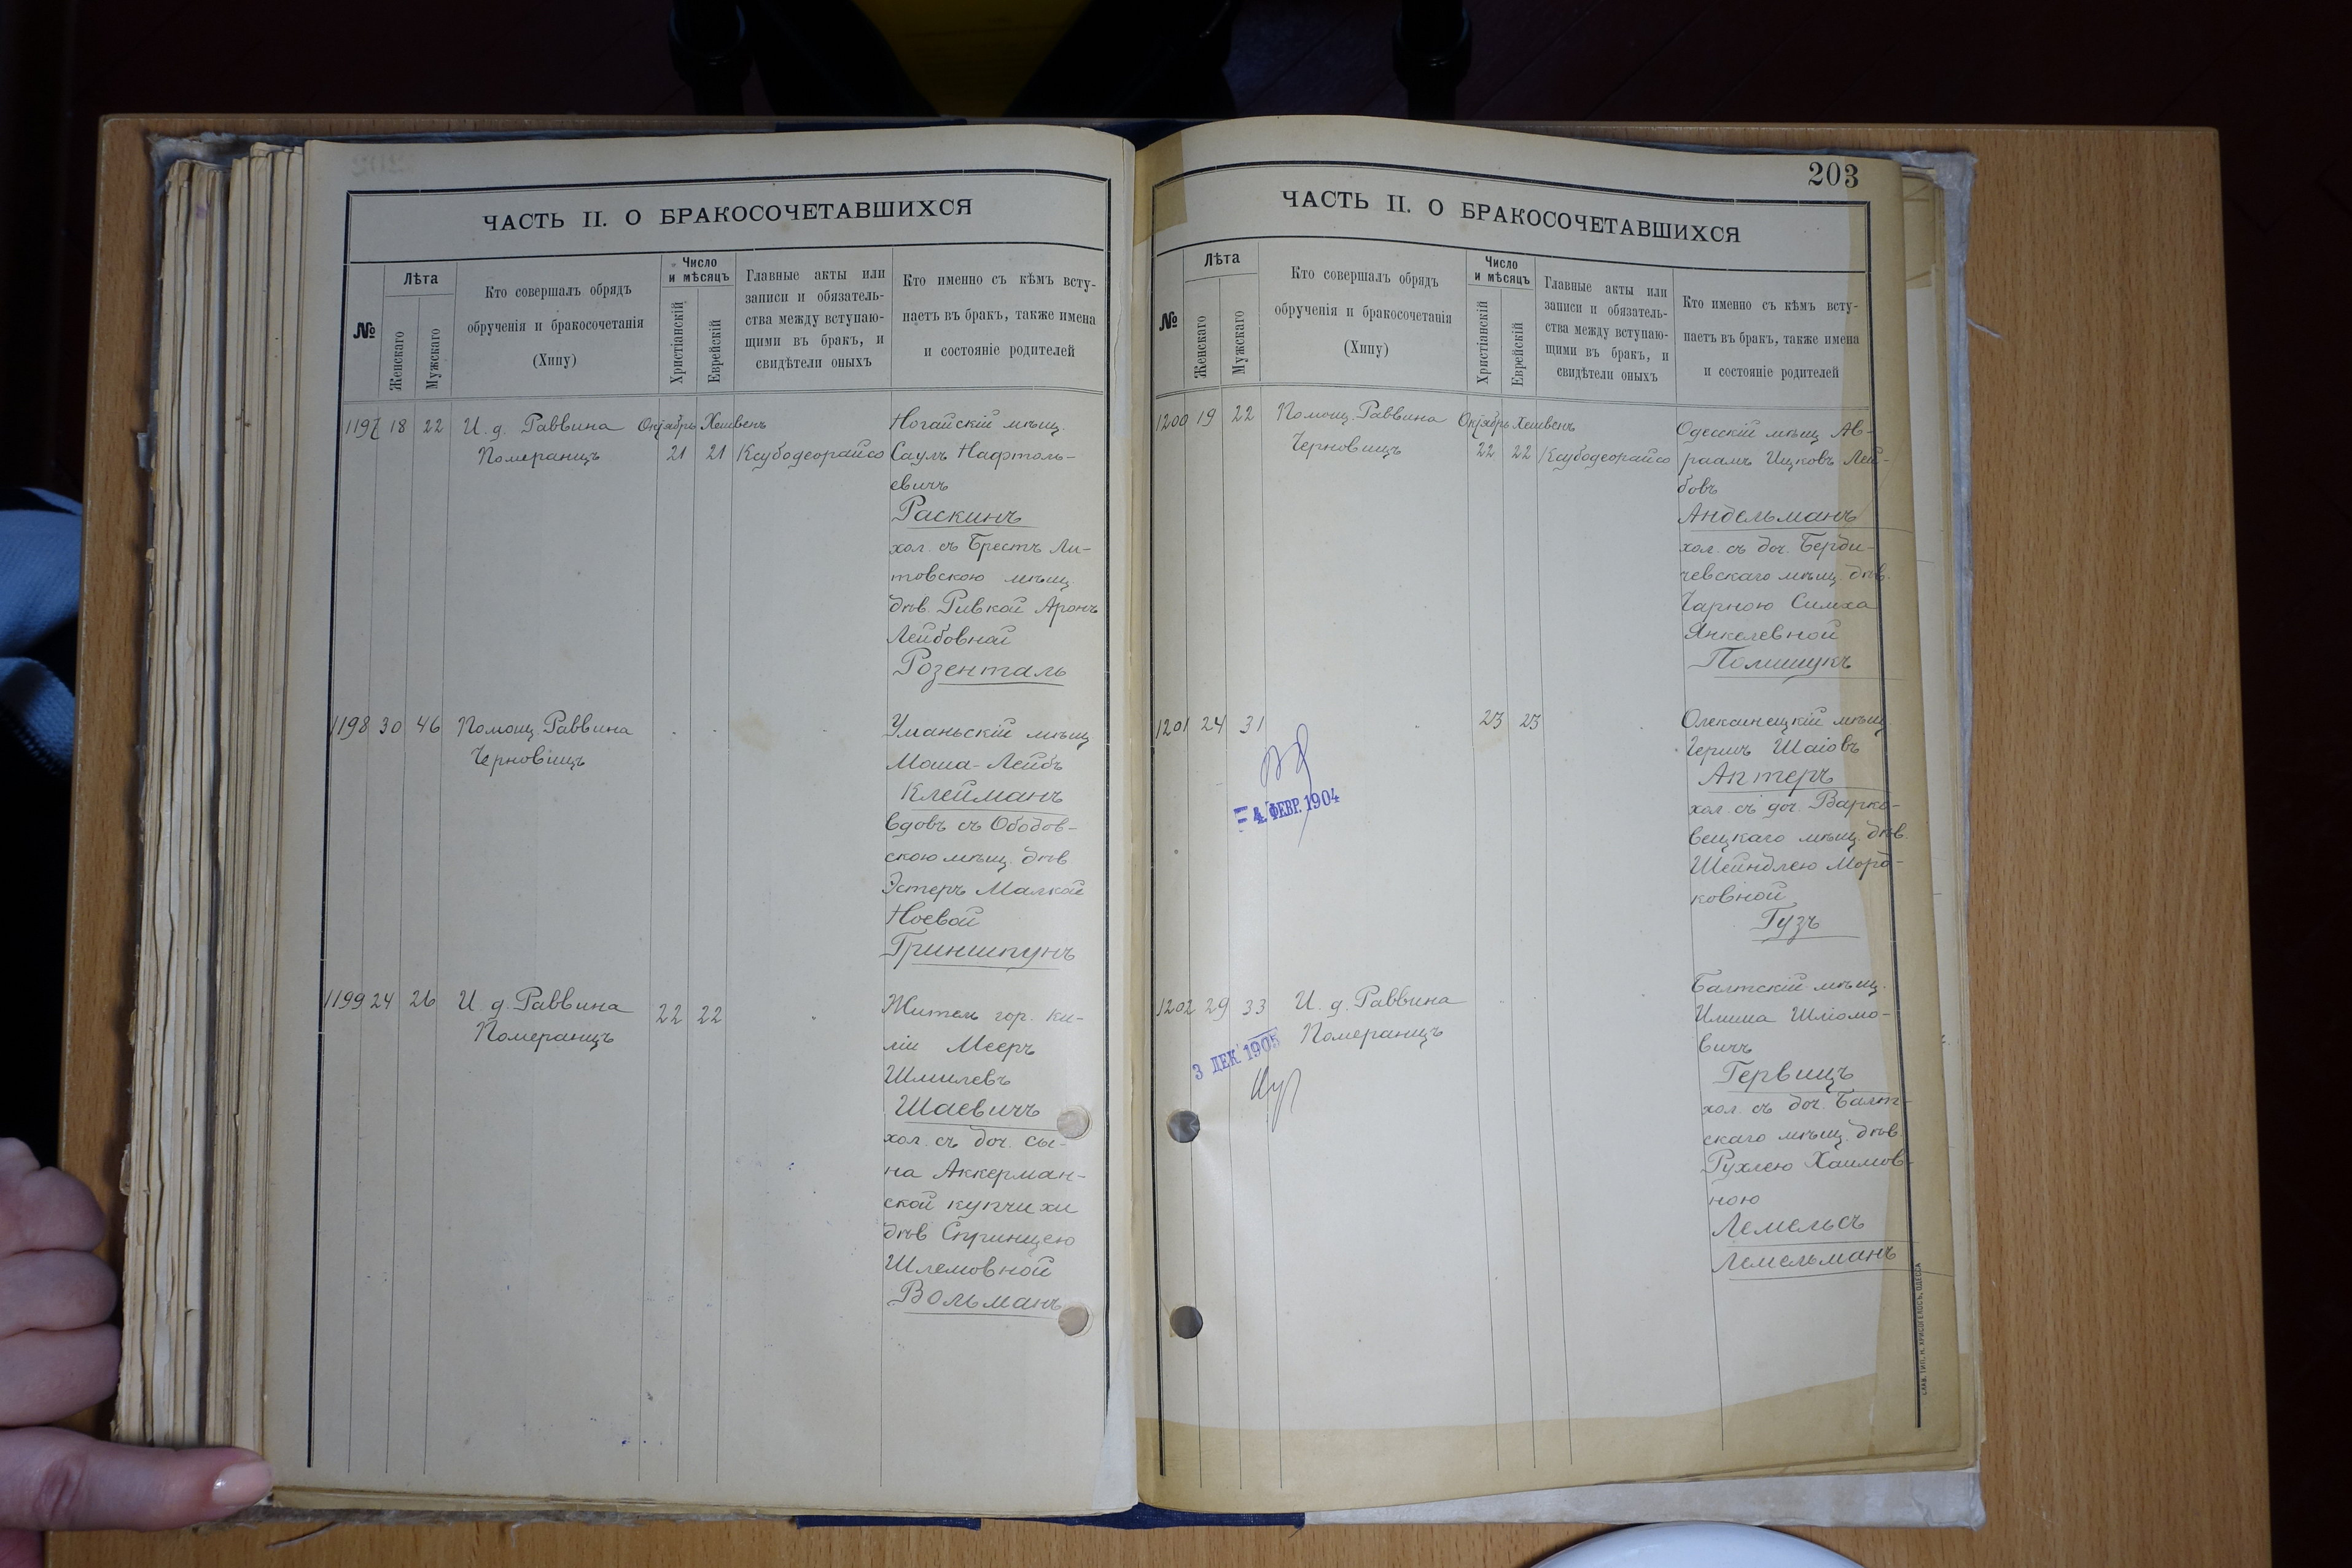 ЧАСТЬ II. О БРАКОСОЧЕТАВШИХСЯ
№
Лѣта
Женскаго
Мужскаго
Кто совершалъ обрядъ
обрученія и бракосочетанія
(Хипу)
Число
и мѣсяцъ
Христіанскій
Еврейскій
Главные акты или
записи и обязатель-
ства между вступаю-
щими въ бракъ, и
свидѣтели оныхъ
Кто именно съ кѣмъ всту-
паетъ въ бракъ, также имена
и состояніе родителей
1197 18 22 И. д. Раввина Октябрь Хешвенъ Ногайскій мѣщ.
Померанцъ 21 21 Ксубодеорайсо Саулъ Нафтоль-
евичъ
Раскинъ
хол. съ Брестъ Ли-
товскою мѣщ
дѣв. Ривкой Аронъ
Лейбовной
Розенталь
1198 30 46 Помощ. Раввина Уманьскій мѣщ
Черновицъ Моша-Лейбъ
Клейманъ
вдовъ съ Ободов-
скою мѣщ. дѣв
Эстеръ Малкой
Ноевой
Гриншпунъ
1199 24 26 И. д. Раввина 22 22 Житель гор. Ки-
Померанцъ ліи Мееръ
Шмилевъ
Шаевичъ
хол. съ доч. сы-
на Аккерман-
ской купчихи
дѣв Спринцею
Шлемовной
Вольманъ
203
ЧАСТЬ II. О БРАКОСОЧЕТАВШИХСЯ
№
Лѣта
Женскаго
Мужскаго
Кто совершалъ обрядъ
обрученія и бракосочетанія
(Хипу)
Число
и мѣсяцъ
Христіанскій
Еврейскій
Главные акты или
записи и обязатель-
ства между вступаю-
щими въ бракъ, и
свидѣтели оныхъ
Кто именно съ кѣмъ всту-
паетъ въ бракъ, также имена
и состояніе родителей
1200 19 22 Помощ. Раввина Октябрь Хешвенъ Одесскій мѣщ Ав-
Черновицъ 22 22 Ксубодеорайсо раамъ Ицковъ Лей-
бовъ
Андельманъ
хол. съ доч. Берди-
чевскаго мѣщ. дѣв.
Чарною Симха
Янкелевной
Полищукъ
1201 24 31 23 23 мѣщ.
Гершъ Шаіовъ
Аптеръ
4 ФЕВР. 1904
хол. съ доч. Варко-
вецкаго мѣщ. дѣв.
Шейндлею Морд-
ковной
Гузъ
1202 29 33 И. д. Раввина Балтскій мѣщ.
Померанцъ Илиша Шліомо-
вичъ
3 ДЕК. 1905
Гервицъ
хол. съ доч. Балт-
скаго мѣщ. дѣв.
Рухлею Хаимов-
ною
Лемельсъ
Лемельманъ
СЛАВ. ТИП. Н. ХРИСОГЕЛОСЪ, ОДЕССА